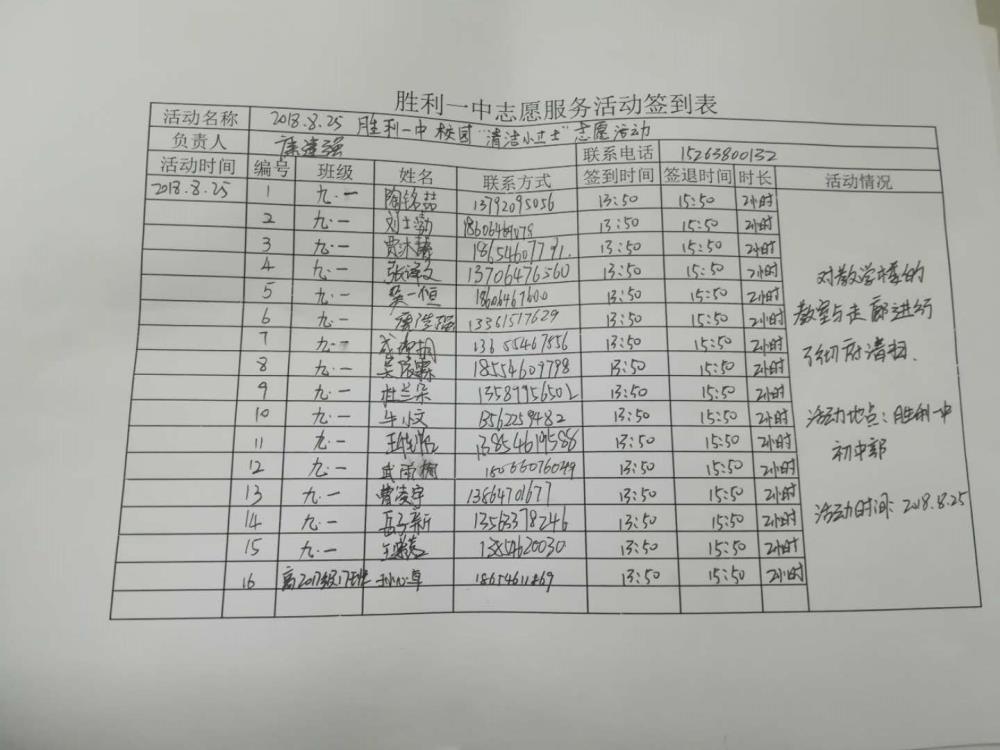 胜利一中志愿服务活动签到表
活动名称 2018.8.25 胜利一中校园“清洁小卫士”志愿活动
负责人 联系电话 15263800132
活动时间 编号 班级 姓名 联系方式 签到时间 签退时间 时长 活动情况
2018.8.25 1 九.一 陶铭喆 13792095056 13:50 15:50 2小时
2 九.一 刘士勋 13:50 15:50 2小时
3 九.一 18654607791. 13:50 15:50 2小时
4 九.一 13706476560 13:50 15:50 2小时
5 九.一 13:50 15:50 2小时
6 九.一 13361517629 13:50 15:50 2小时
7 九.一 13655467556 13:50 15:50 2小时
8 九.一 18554609798 13:50 15:50 2小时
9 九.一 杜兰朵 13589956502 13:50 15:50 2小时
10 九.一 牛小文 13562259482 13:50 15:50 2小时
11 九.一 13854619588 13:50 15:50 2小时
12 九.一 13:50 15:50 2小时
13 九.一 曹凌宇 13864701677 13:50 15:50 2小时
14 九.一 岳子新 13563378246 13:50 15:50 2小时
15 九.一 13854620030 13:50 15:50 2小时
16 高2017级17班 孙心卓 18654611869 13:50 15:50 2小时
对教学楼的
教室与走廊进行
了彻底清扫.
活动地点:胜利一中
初中部
活动时间:2018.8.25